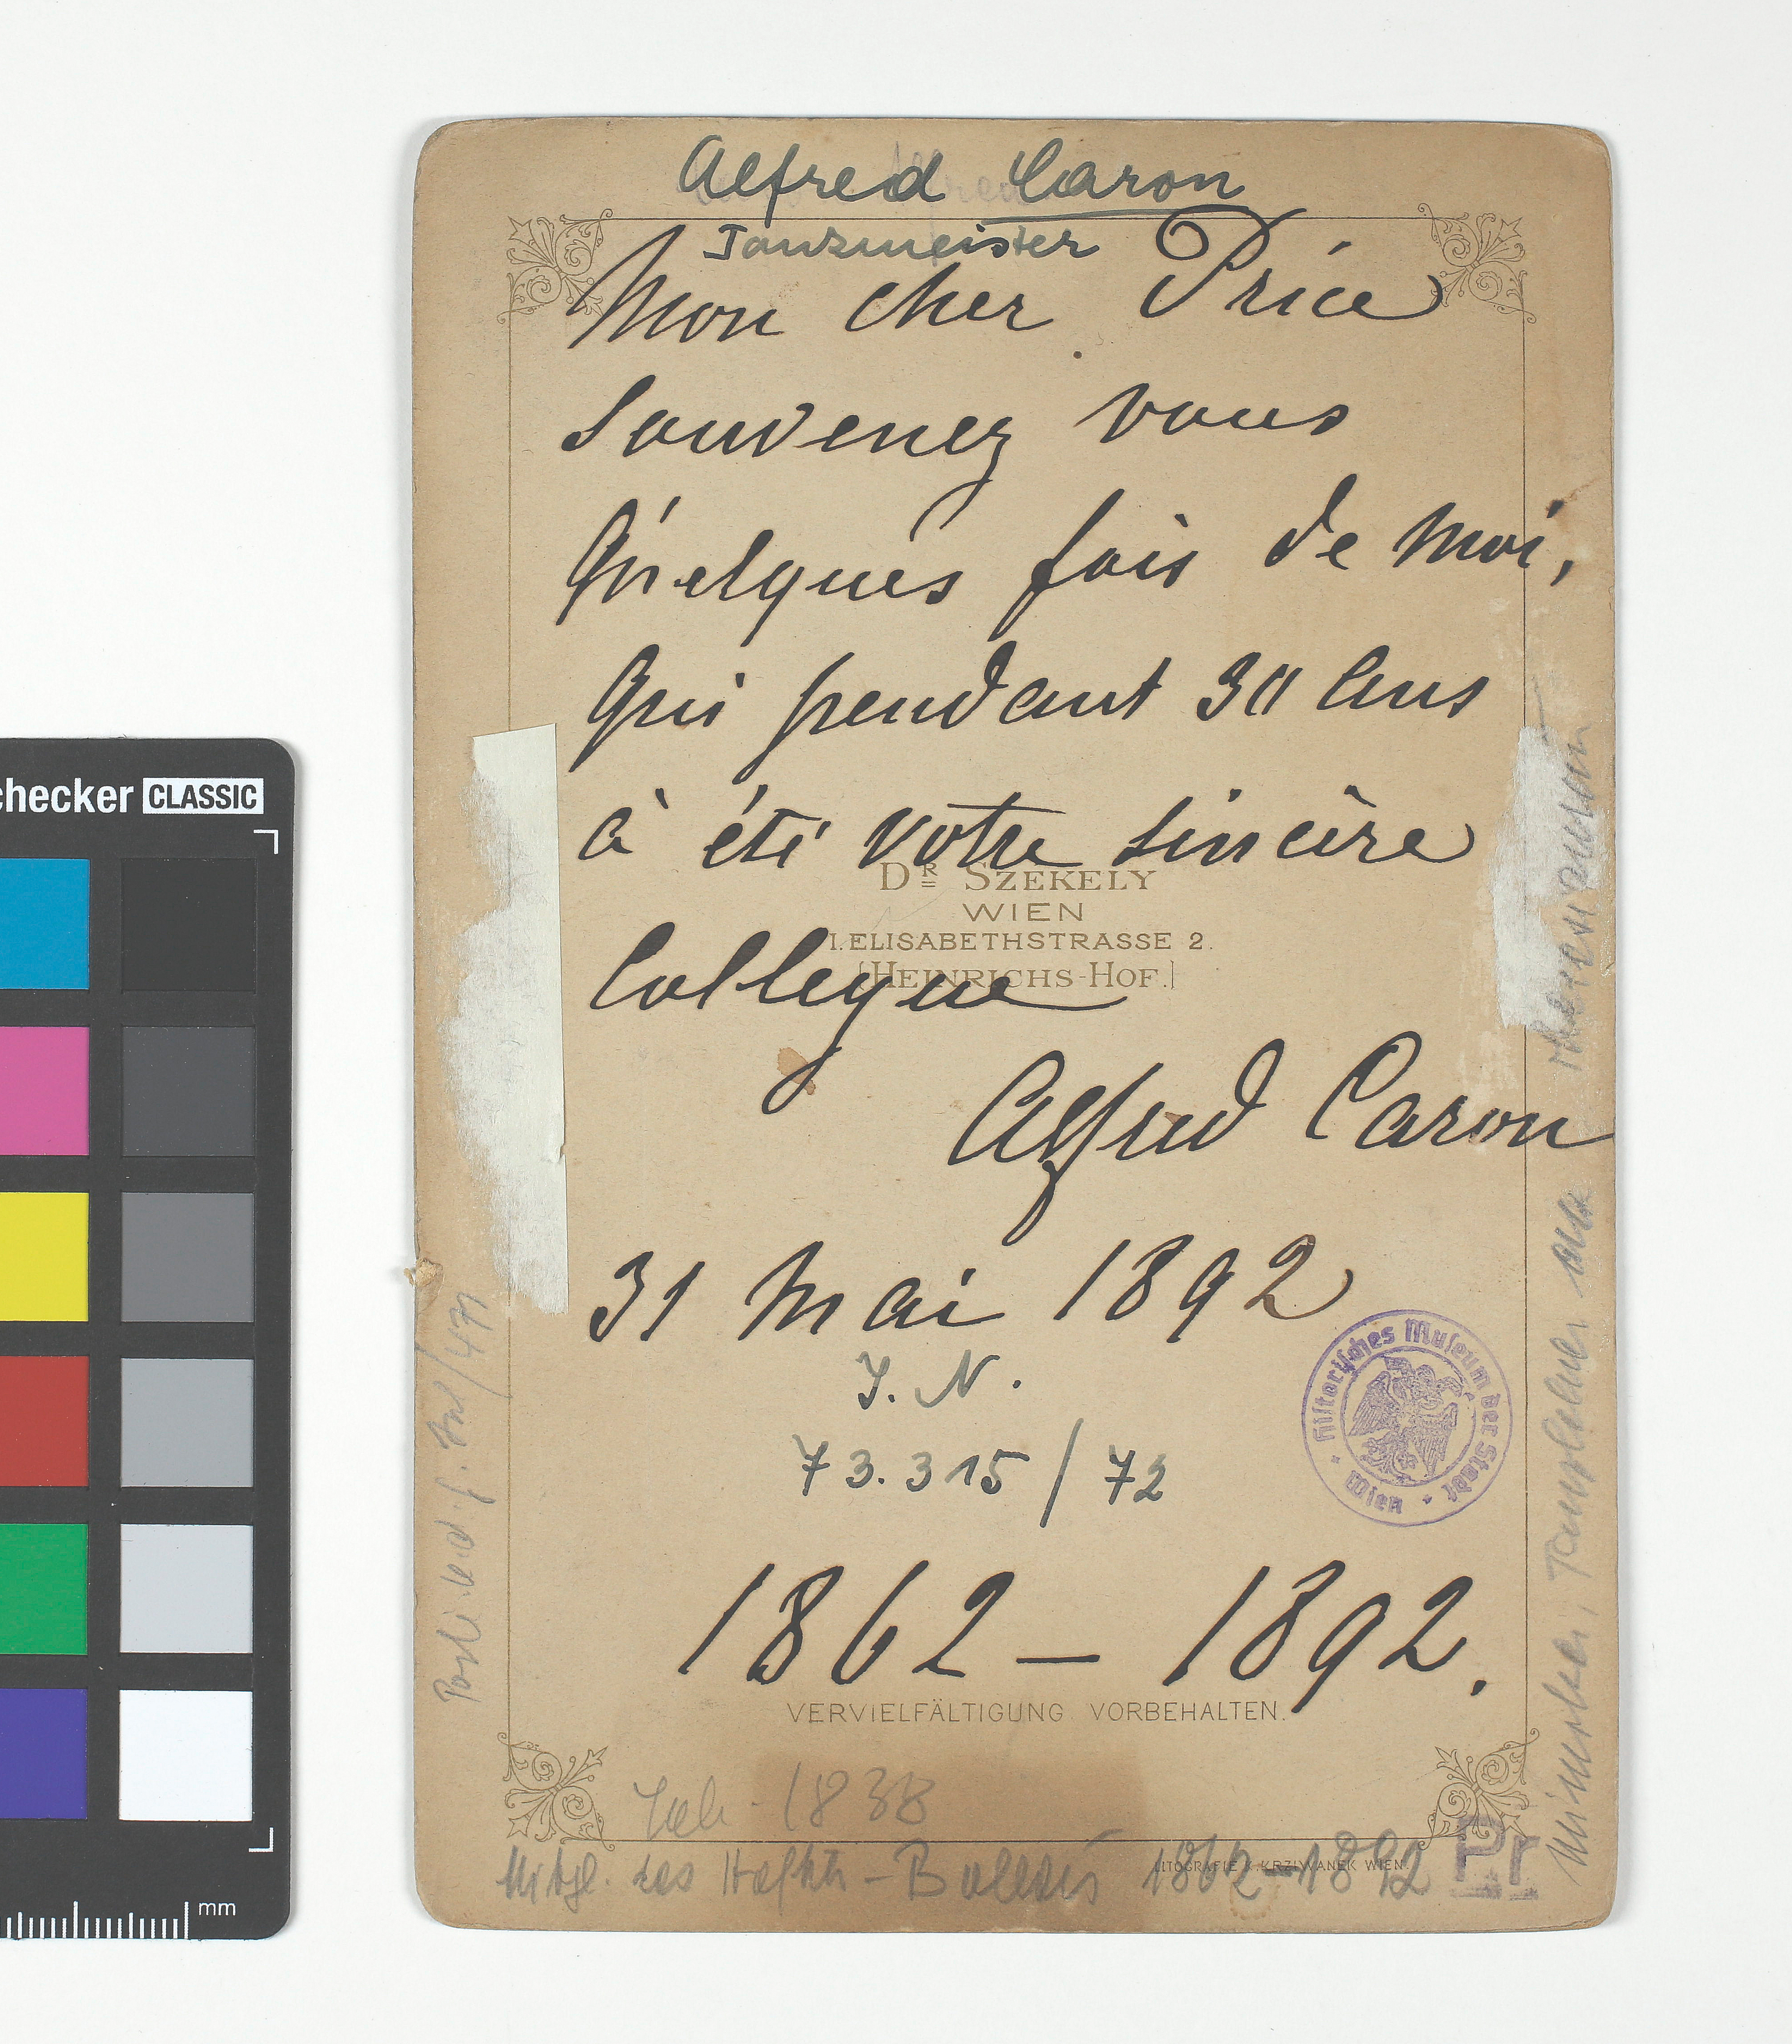 Alfred Caron
Tanzmeister
Mon cher Price
Souvenez vous
Quelques fois de moi,
Qui pendant 30 ans
à été votre sincère
Collegue
Alfred Caron
31 Mai 1892
J. N.
73.315 / 72
1862 – 1892.
DR SZEKELY
WIEN
I. ELISABETHSTRASSE 2.
[HEINRICHS-HOF.]
Historisches Museum der Stadt Wien
VERVIELFÄLTIGUNG VORBEHALTEN.
1838
Mitgl. des Hofth – Balletts 1862–1892
LITOGRAFIE K. KRZIWANEK WIEN.
Pr
checker CLASSIC
mm